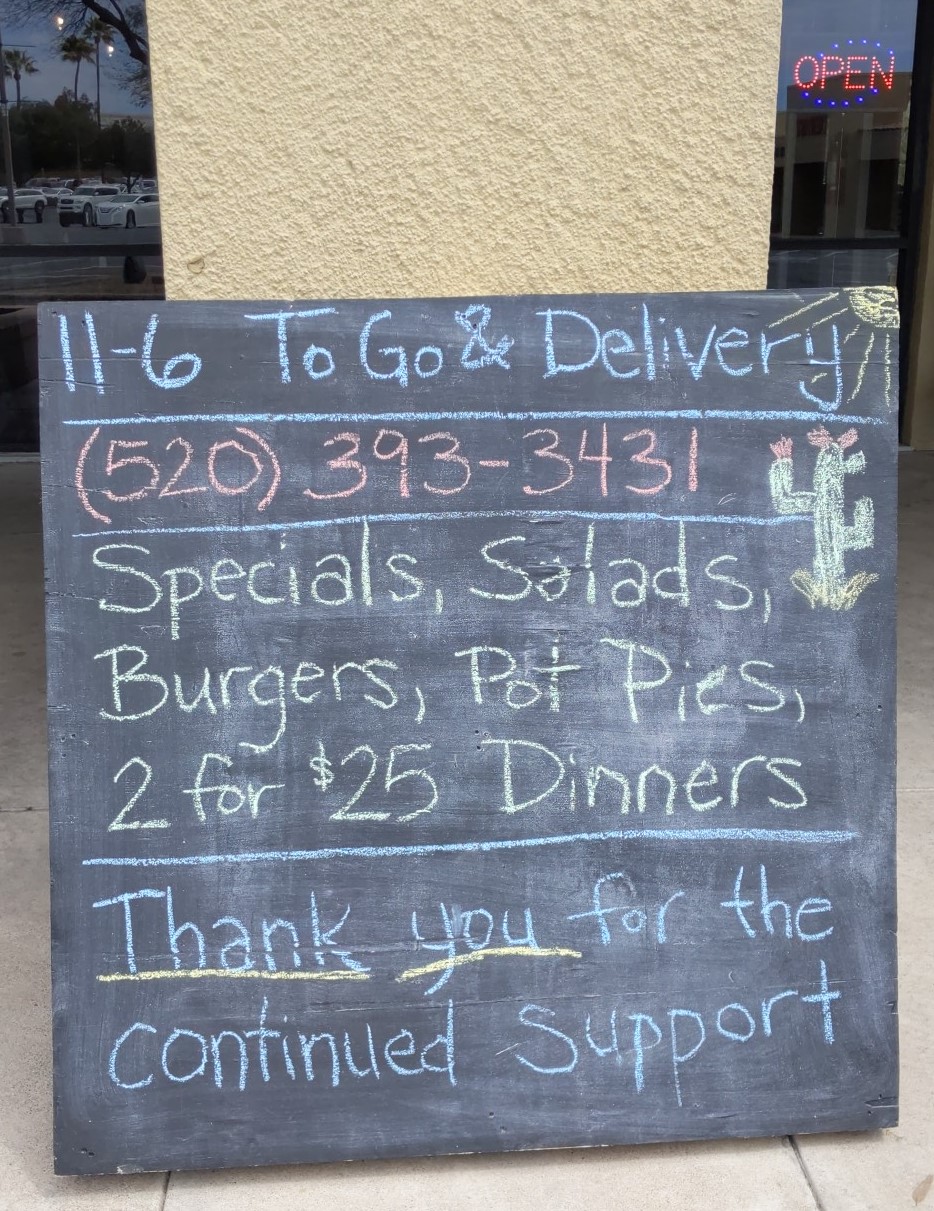 OPEN
11-6 To Go & Delivery
(520) 393-3431
Specials, Salads,
Burgers, Pot Pies,
2 for $25 Dinners
Thank you for the
continued Support